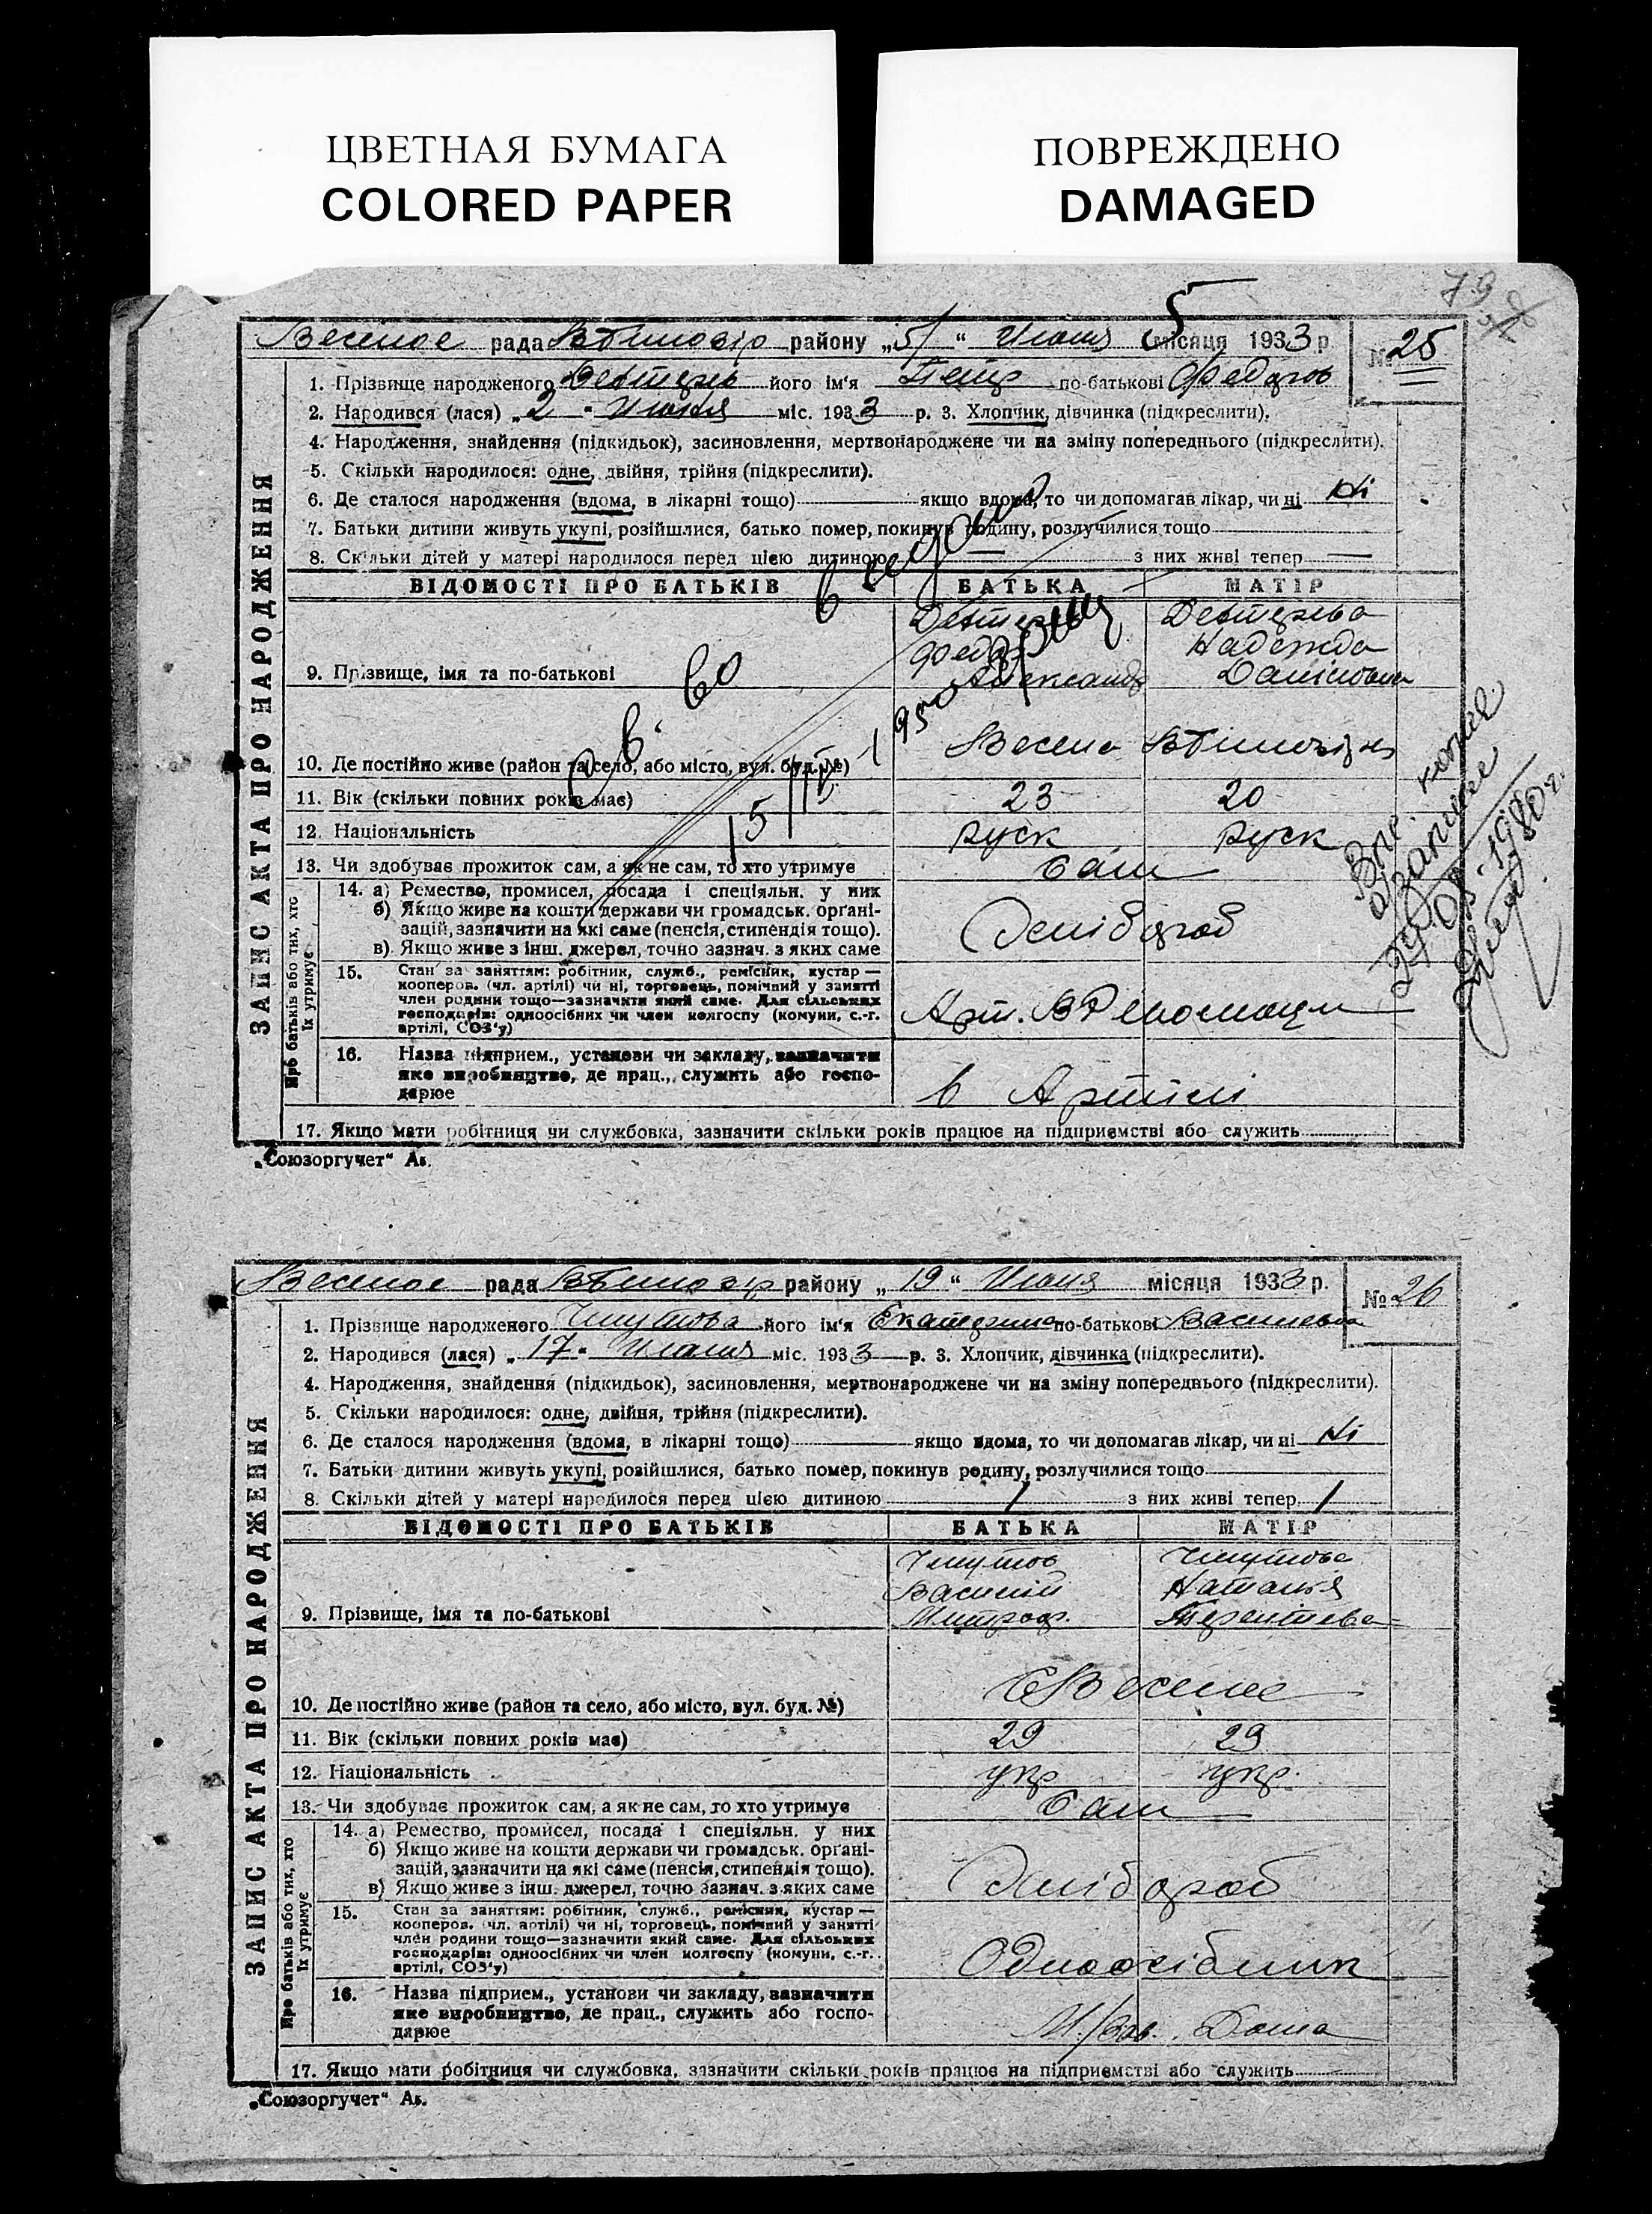 ЦВЕТНАЯ БУМАГА
COLORED PAPER
ПОВРЕЖДЕНО
DAMAGED
79
ЗАПИС АКТА ПРО НАРОДЖЕННЯ
Веселое рада району „5“ Июня місяця 1933 р. № 25
1. Прізвище народженого його ім'я Петр по-батькові Федоров
2. Народився (лася) „2“ Июня міс. 1933 р. 3. Хлопчик, дівчинка (підкреслити).
4. Народження, знайдення (підкидьок), засиновлення, мертвонароджене чи на зміну попереднього (підкреслити).
5. Скільки народилося: одне, двійня, трійня (підкреслити).
6. Де сталося народження (вдома, в лікарні тощо) якщо вдома, то чи допомагав лікар, чи ні Ні
7. Батьки дитини живуть укупі, розійшлися, батько помер, покинув родину, розлучилися тощо
8. Скільки дітей у матері народилося перед цією дитиною — з них живі тепер —
ВІДОМОСТІ ПРО БАТЬКІВ БАТЬКА МАТІР
Надежда
9. Прізвище, імя та по-батькові Александ
10. Де постійно живе (район та село, або місто, вул. буд. №)
11. Вік (скільки повних років має) 23 20
12. Національність руск руск
13. Чи здобуває прожиток сам, а як не сам, то хто утримує Сам
Про батьків або тих, хто їх утримує
14. а) Ремество, промисел, посада і спеціяльн. у них
б) Якщо живе на кошти держави чи громадськ. органі-
зацій, зазначити на які саме (пенсія, стипендія тощо).
в) Якщо живе з інш. джерел, точно зазнач. з яких саме
Хлібороб
15. Стан за заняттям: робітник, служб., ремісник, кустар —
кооперов. (чл. артілі) чи ні, торговець, помічний у занятті
член родини тощо—зазначити який саме. Для сільських
господарів: одноосібних чи член колгоспу (комуни, с.-г.
артілі, СОЗ'у)
Арт.
16. Назва підприєм., установи чи закладу, зазначити
яке виробництво, де прац., служить або госпо-
дарює
в Артілі
17. Якщо мати робітниця чи службовка, зазначити скільки років працює на підприємстві або служить
„Союзоргучет“ Аб.
1950
ЗАПИС АКТА ПРО НАРОДЖЕННЯ
Веселое рада району „19“ Июня місяця 1933 р. № 26
1. Прізвище народженого його ім'я Екатерина по-батькові Васильевна
2. Народився (лася) „17“ Июня міс. 1933 р. 3. Хлопчик, дівчинка (підкреслити).
4. Народження, знайдення (підкидьок), засиновлення, мертвонароджене чи на зміну попереднього (підкреслити).
5. Скільки народилося: одне, двійня, трійня (підкреслити).
6. Де сталося народження (вдома, в лікарні тощо) якщо вдома, то чи допомагав лікар, чи ні Ні
7. Батьки дитини живуть укупі, розійшлися, батько помер, покинув родину, розлучилися тощо
8. Скільки дітей у матері народилося перед цією дитиною 1 з них живі тепер 1
ВІДОМОСТІ ПРО БАТЬКІВ БАТЬКА МАТІР
Василий Наталья
9. Прізвище, імя та по-батькові Митроф.
10. Де постійно живе (район та село, або місто, вул. буд. №) с Веселое
11. Вік (скільки повних років має) 29 29
12. Національність укр укр.
13. Чи здобуває прожиток сам, а як не сам, то хто утримує Сам
Про батьків або тих, хто їх утримує
14. а) Ремество, промисел, посада і спеціяльн. у них
б) Якщо живе на кошти держави чи громадськ. органі-
зацій, зазначити на які саме (пенсія, стипендія тощо).
в) Якщо живе з інш. джерел, точно зазнач. з яких саме
Хлібороб
15. Стан за заняттям: робітник, служб., ремісник, кустар —
кооперов. (чл. артілі) чи ні, торговець, помічний у занятті
член родини тощо—зазначити який саме. Для сільських
господарів: одноосібних чи член колгоспу (комуни, с.-г.
артілі, СОЗ'у)
Одноосібник
16. Назва підприєм., установи чи закладу, зазначити
яке виробництво, де прац., служить або госпо-
дарює
Дома
17. Якщо мати робітниця чи службовка, зазначити скільки років працює на підприємстві або служить
„Союзоргучет“ Аб.